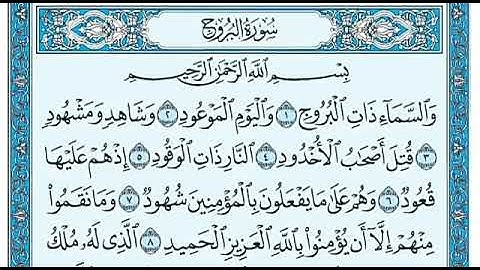 سُورَةُ الْبُرُوجِ
بِسْمِ اللَّهِ الرَّحْمَٰنِ الرَّحِيمِ
وَالسَّمَاءِ ذَاتِ الْبُرُوجِ ١ وَالْيَوْمِ الْمَوْعُودِ ٢ وَشَاهِدٍ وَمَشْهُودٍ
٣ قُتِلَ أَصْحَابُ الْأُخْدُودِ ٤ النَّارِ ذَاتِ الْوَقُودِ ٥ إِذْ هُمْ عَلَيْهَا
قُعُودٌ ٦ وَهُمْ عَلَىٰ مَا يَفْعَلُونَ بِالْمُؤْمِنِينَ شُهُودٌ ٧ وَمَا نَقَمُوا
مِنْهُمْ إِلَّا أَنْ يُؤْمِنُوا بِاللَّهِ الْعَزِيزِ الْحَمِيدِ ٨ الَّذِي لَهُ مُلْكُ